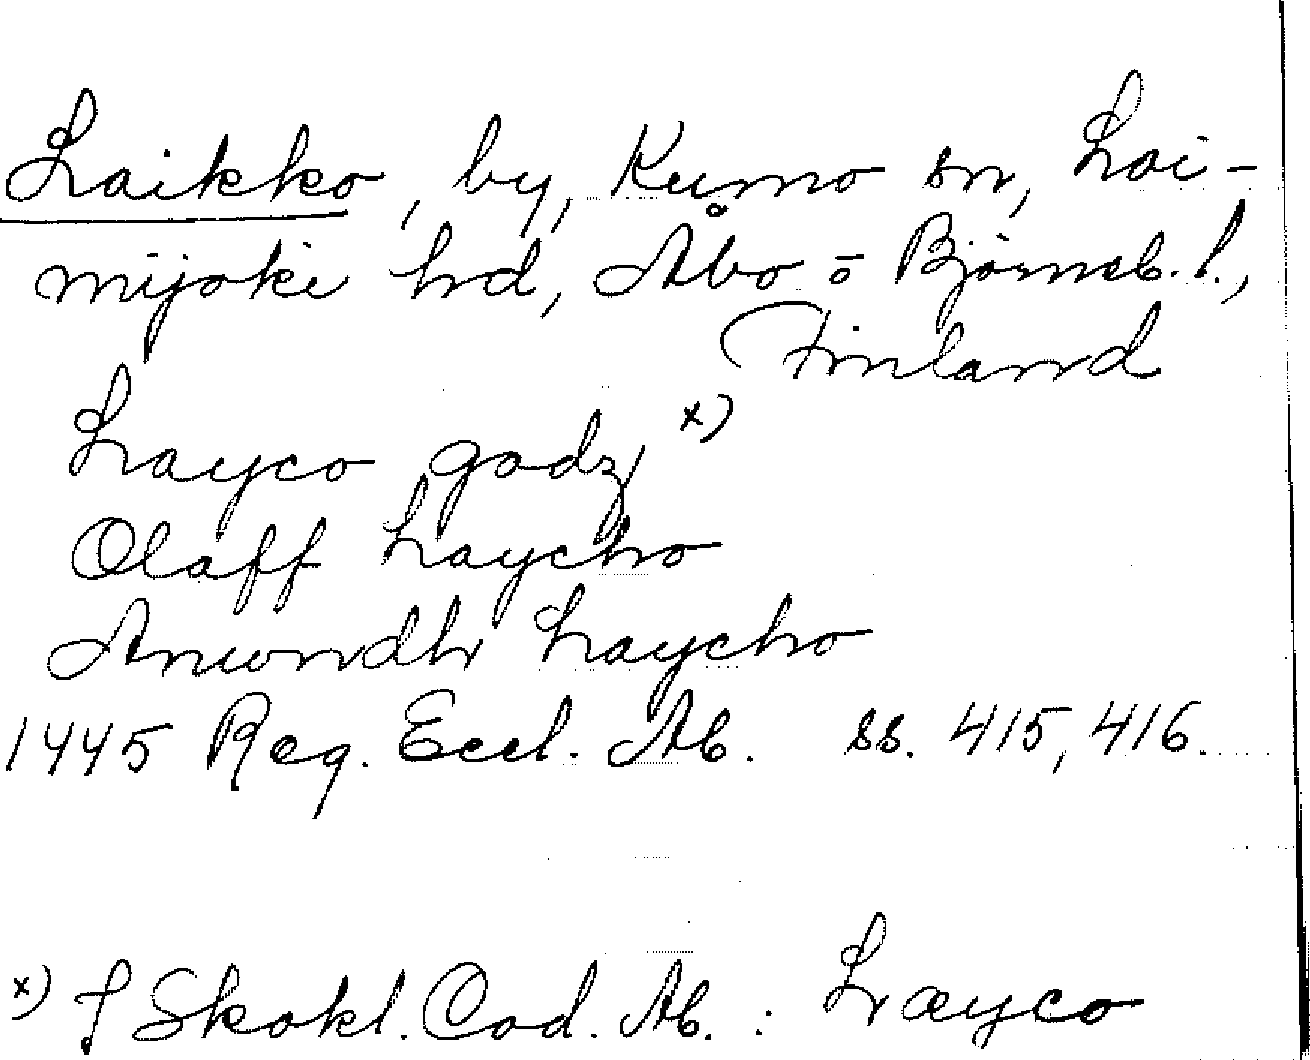 Laikko, by, Kumo sn, Loi-
mijoki hd, Åbo o Björneb. l.,
Finland
Layco godz x)
Olaff Laycho
Anwndh Laycho
1445 Reg. Eccl. Ab. ss. 415, 416.
x) I Skokl. Cod. Ab. : Læyco